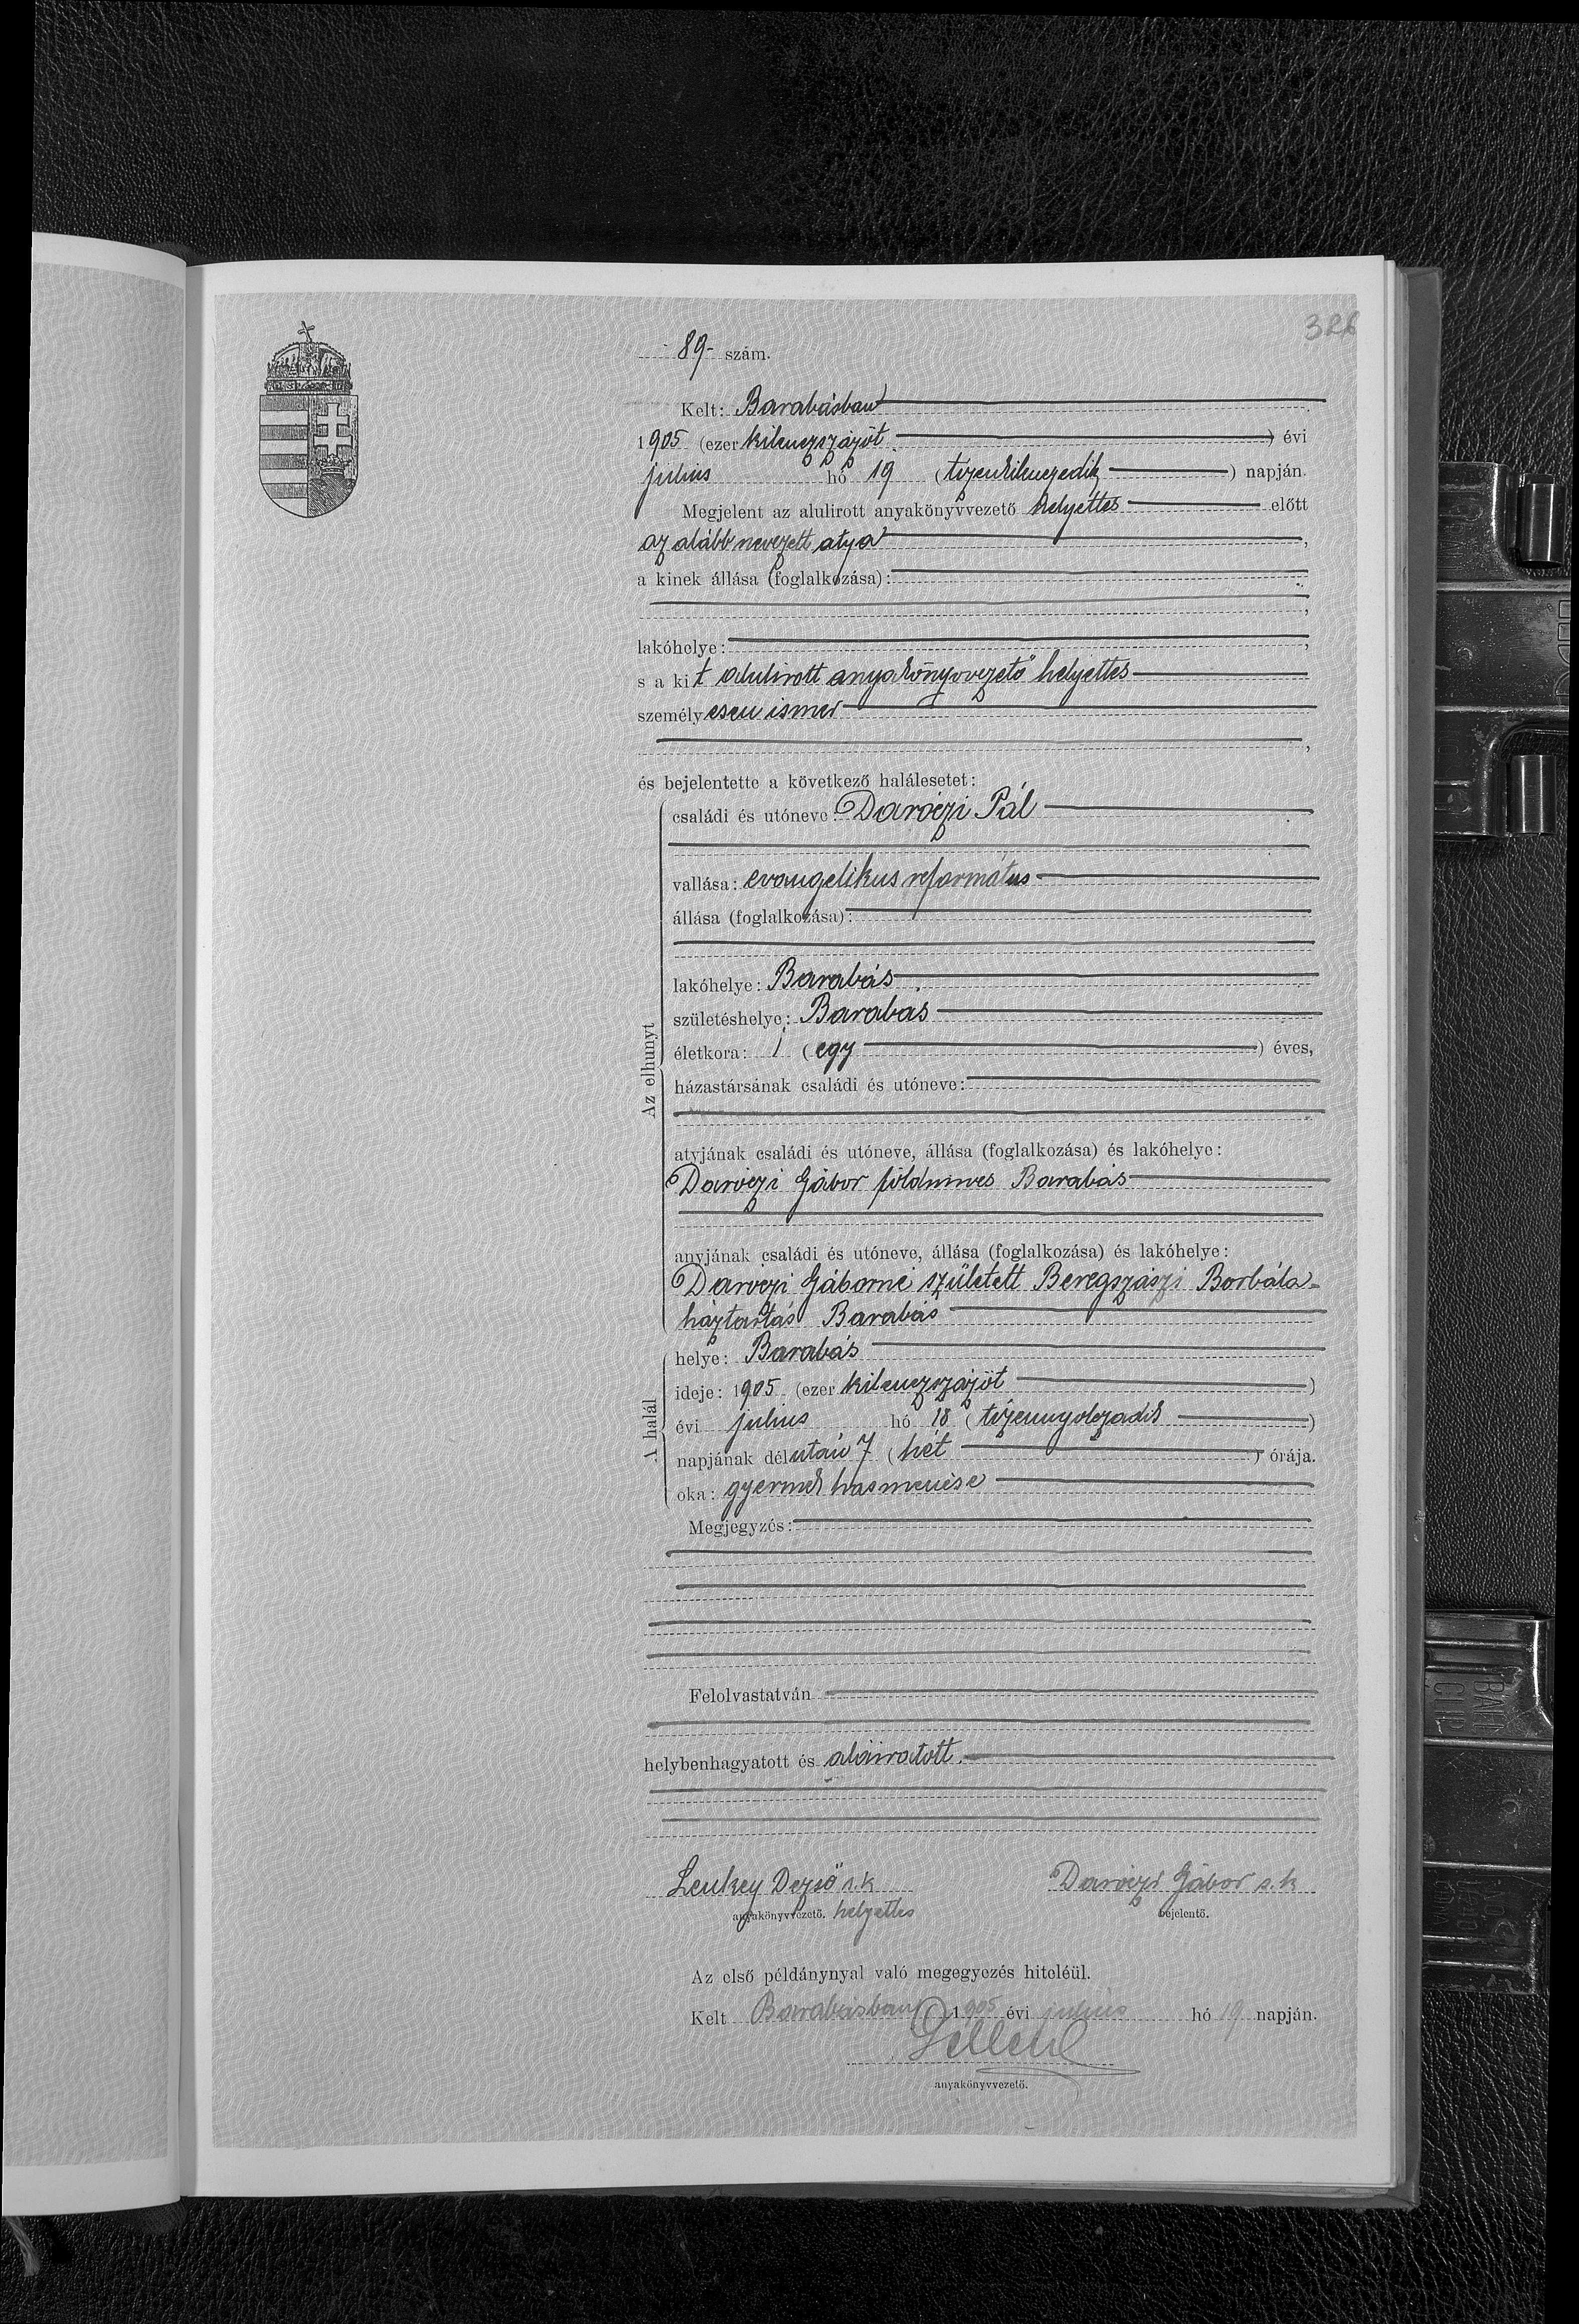 326
89 szám.
Kelt: Barabásban
1905 (ezer kilenczszázöt) évi
julius hó 19 (tizenkilenczedik) napján.
Megjelent az alulirott anyakönyvvezető helyettes előtt
az alább nevezett atya,
a kinek állása (foglalkozása):
lakóhelye:
s a kit alulirott anyakönyvvezető helyettes
személyesen ismer
és bejelentette a következő halálesetet:
Az elhunyt
családi és utóneve: Daróczi Pál
vallása: evangelikus református
állása (foglalkozása):
lakóhelye: Barabás
születéshelye: Barabás
életkora: 1 (egy) éves,
házastársának családi és utóneve:
atyjának családi és utóneve, állása (foglalkozása) és lakóhelye:
Daróczi Gábor földmives Barabás
anyjának családi és utóneve, állása (foglalkozása) és lakóhelye:
Daróczi Gáborné született Beregszászi Borbála
háztartás Barabás
A halál
helye: Barabás
ideje: 1905 (ezer kilenczszázöt)
évi julius hó 18 (tizennyolczadik)
napjának délután 7 (hét) órája.
oka: gyermek hasmenése
Megjegyzés:
Felolvastatván
helybenhagyatott és aláiratott.
Dezső s.k Daróczi Gábor s.k
anyakönyvvezető. helyettes bejelentő.
Az első példánynyal való megegyezés hiteléül.
Kelt Barabásban 1905 évi julius hó 19 napján.
anyakönyvvezető.